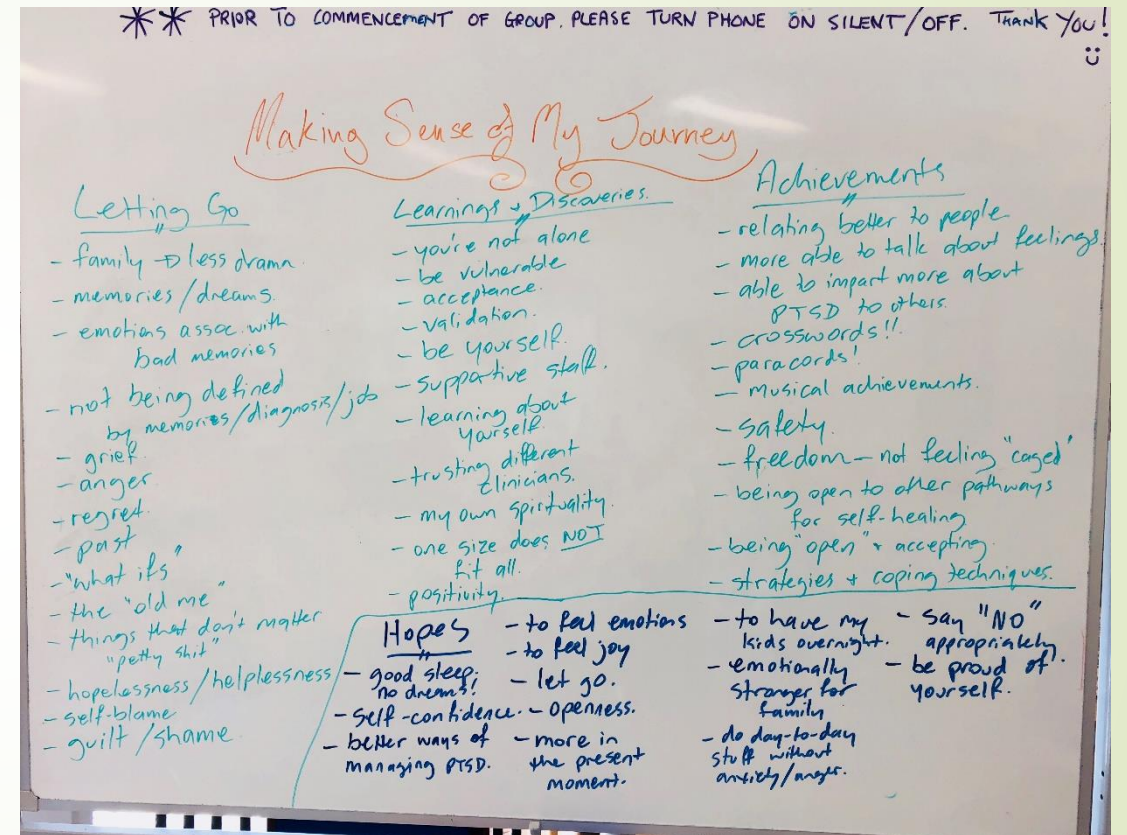 ** PRIOR TO COMMENCEMENT OF GROUP. PLEASE TURN PHONE ON SILENT/OFF. THANK YOU!
Making Sense of My Journey
Letting Go
- family → less drama
- memories/dreams.
- emotions assoc. with
bad memories
- not being defined
by memories/diagnosis/job
- grief.
- anger.
- regret.
- past
- "what ifs"
- the "old me"
- things that don't matter
"petty shit"
- hopelessness/helplessness
- self-blame
- guilt/shame.
Learnings + Discoveries.
- you're not alone
- be vulnerable
- acceptance.
- validation.
- be yourself.
- supportive staff.
- learning about
yourself.
- trusting different
clinicians.
- my own spirituality.
- one size does NOT
fit all.
- positivity.
Achievements
- relating better to people
- more able to talk about feelings.
- able to impart more about
PTSD to others.
- crosswords!!
- paracords!
- musical achievements.
- safety.
- freedom – not feeling "caged"
- being open to other pathways
for self-healing
- being "open" + accepting.
- strategies + coping techniques.
Hopes
- good sleep;
no dreams!
- self-confidence.
- better ways of
managing PTSD.
- to feel emotions
- to feel joy
- let go.
- openness.
- more in
the present
moment.
- to have my
kids overnight.
- emotionally
stronger for
family
- do day-to-day
stuff without
anxiety/anger.
- say "NO"
appropriately.
- be proud of
yourself.